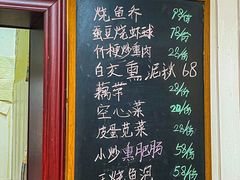 烧鱼乔 9/份
蚕豆烧虾球 78/份
竹梗炒熏肉 28/份
白交熏泥鳅 68
藕芊 28/份
空心菜 20/份
皮蛋苋菜 28/份
小炒熏肥肠 58/份
烧鱼泡 58/份